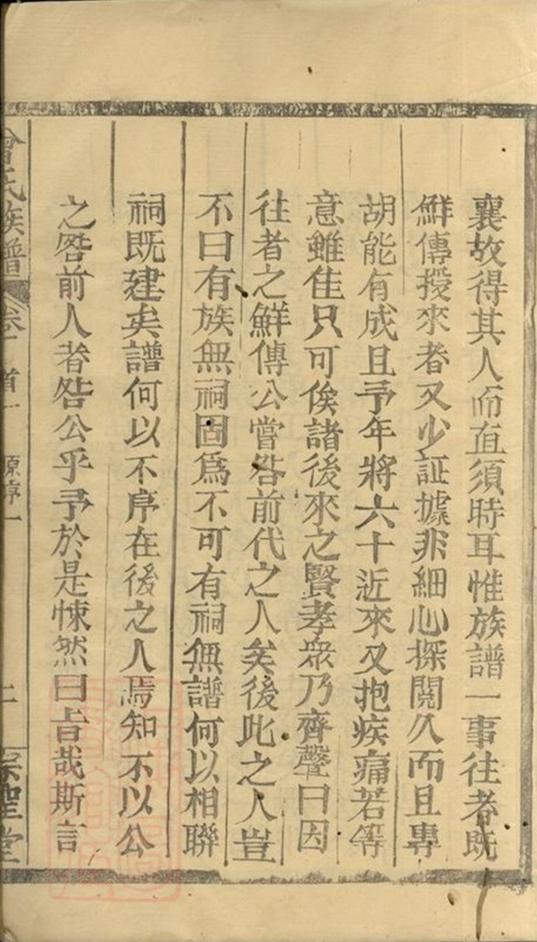 襄故得其人而直須時耳惟族譜一事往者既
鮮傳授來者又少証據非細心探閱久而且專
胡能有成且予年將六十近來又抱疾痛若等
意雖佳只可俟諸後來之賢孝衆乃齊聲曰因
往者之鮮傳公嘗咎前代之人矣後此之人豈
不曰有族無祠固爲不可有祠無譜何以相聯
祠既建矣譜何以不序在後之人焉知不以公
之咎前人者咎公乎予於是悚然曰旨哉斯言
曾氏族譜 卷 首 源序一 二 宗聖堂